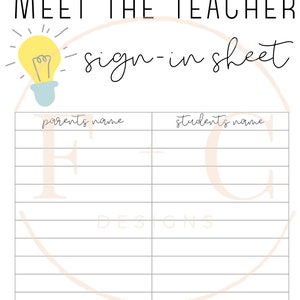 MEET THE TEACHER
sign-in sheet
parents name students name
F + C
DESIGNS